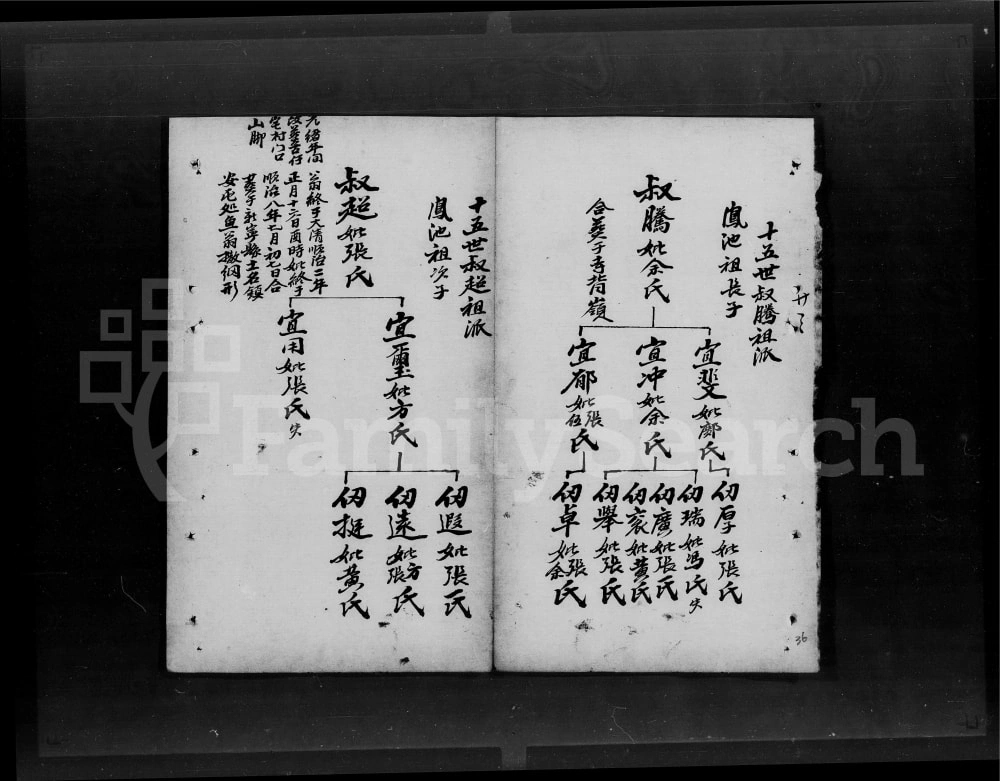 十五世叔騰祖派
鳳池祖長子
叔騰妣余氏
合葬于寺背嶺
宜斐妣鄺氏
宜冲妣余氏
宜郁妣張伍氏
仞厚妣張氏
仞瑞妣馮氏失
仞廣妣張氏
仞袞妣黃氏
仞舉妣張氏
仞卓妣張余氏
36
十五世叔超祖派
鳳池祖次子
叔超妣張氏
翁終于大清順治二年
正月十三日酉時妣終于
順治八年七月初七日合
葬于新寧縣土名鎮
安屯处鱼翁撒網形
光緒年间
改葬
宅村门口
山脚
宜璽妣方氏
宜用妣張氏失
仞遐妣張氏
仞遠妣方張氏
仞挺妣黃氏
FamilySearch